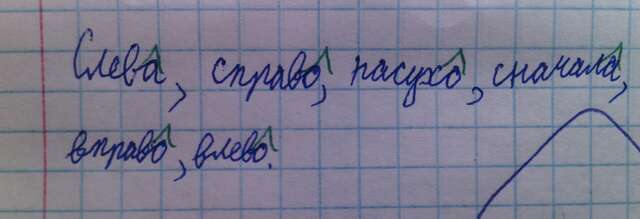 Слева, справо, насухо, сначала,
вправо, влево.